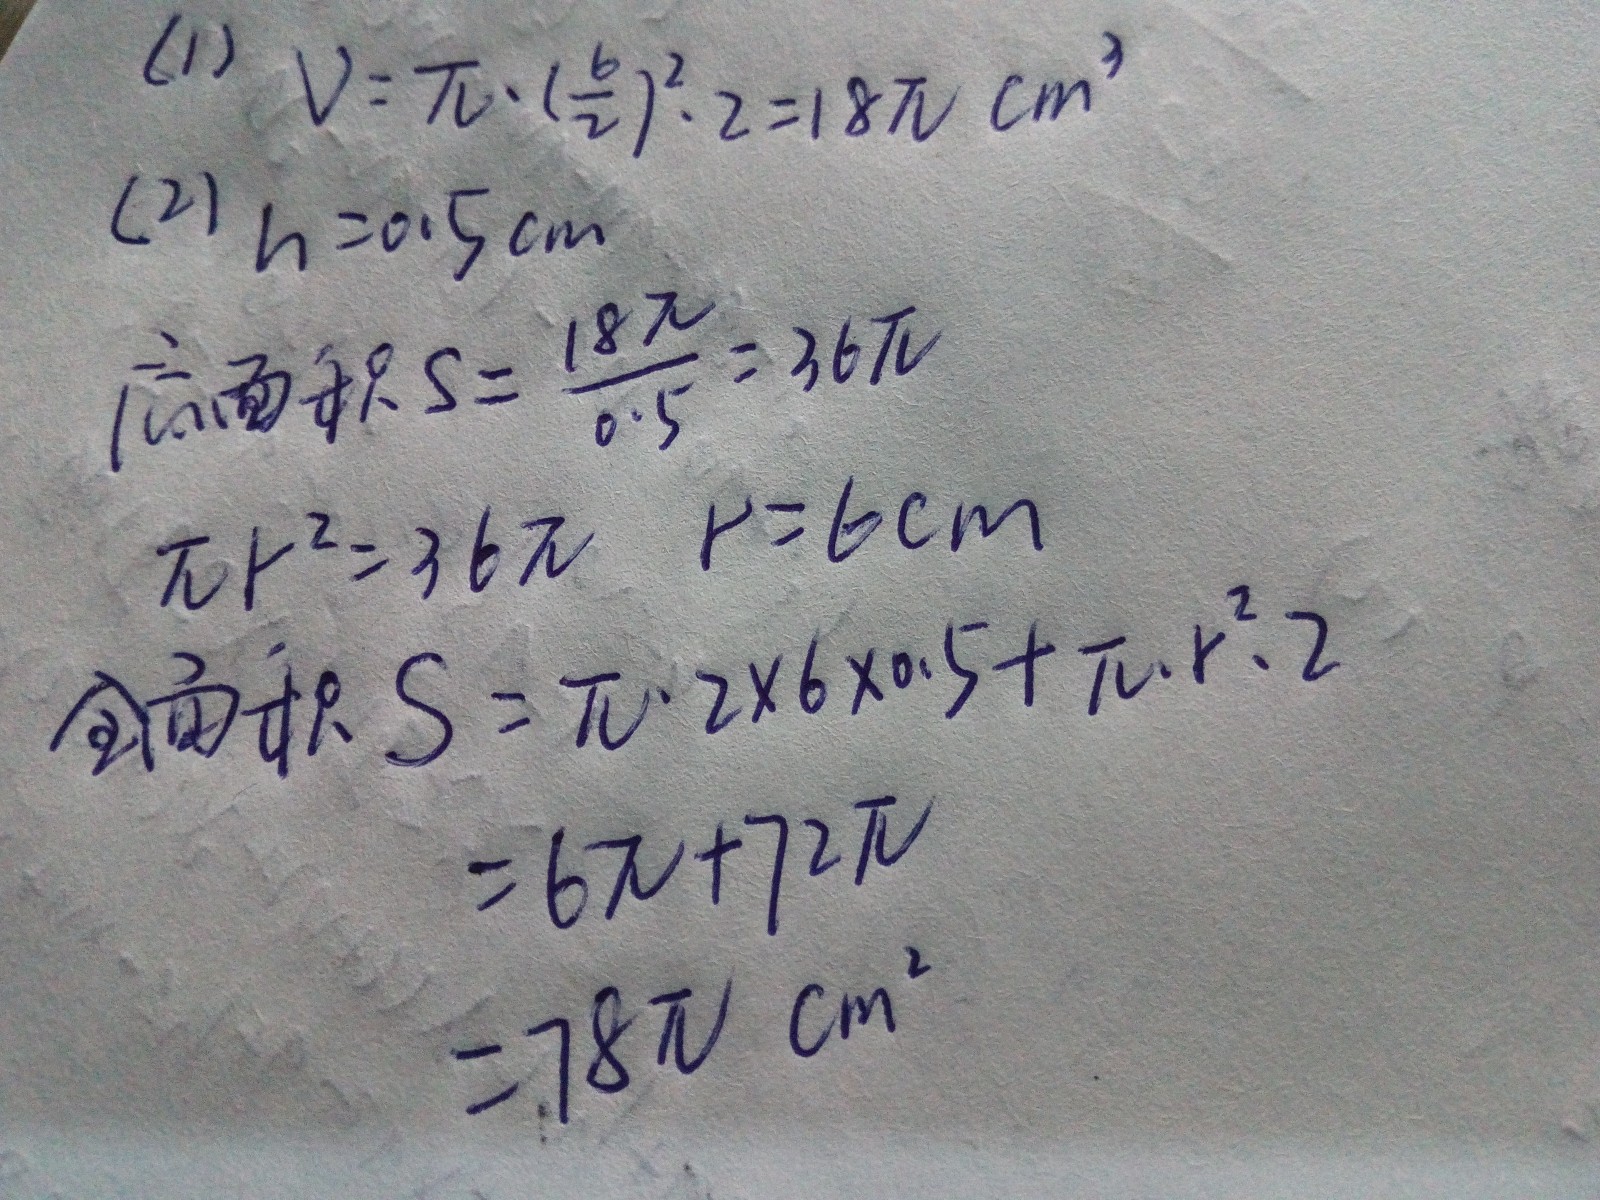 (1) V=π·(6/2)²·2=18π cm³
(2) h=0.5cm
底面积 S=18π/0.5=36π
πr²=36π r=6cm
全面积 S=π·2×6×0.5+π·r²·2
=6π+72π
=78π cm²